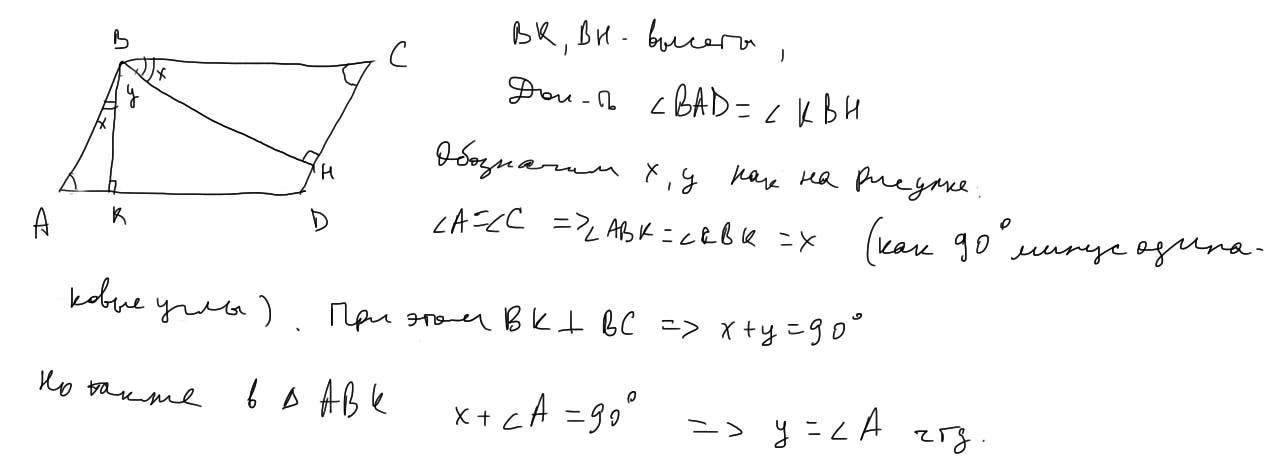 B
C
x
y
x
H
A
K
D
BK, BH - высоты,
Док-ть ∠BAD = ∠KBH
Обозначим x, y как на рисунке.
∠A=∠C => ∠ABK = ∠CBK = x (как 90° минус одина-
ковые углы). При этом BK ⊥ BC => x+y=90°
Но также в △ ABK x+∠A=90° => y=∠A чтд.